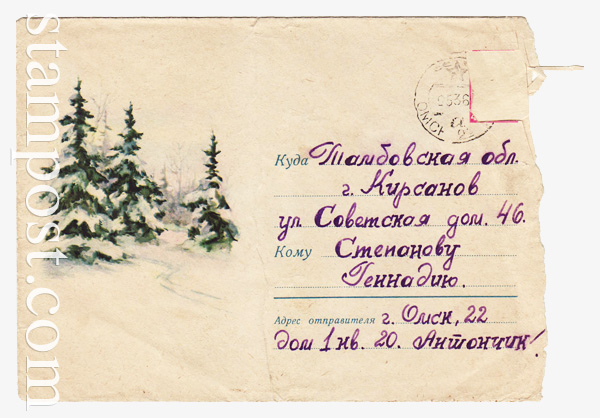 stampost.com
ОМСК
Куда Тамбовская обл.
г. Кирсанов
ул Советская дом. 46.
Кому Степанову
Геннадию.
Адрес отправителя г. Омск, 22
дом 1 кв. 20. Антончик!